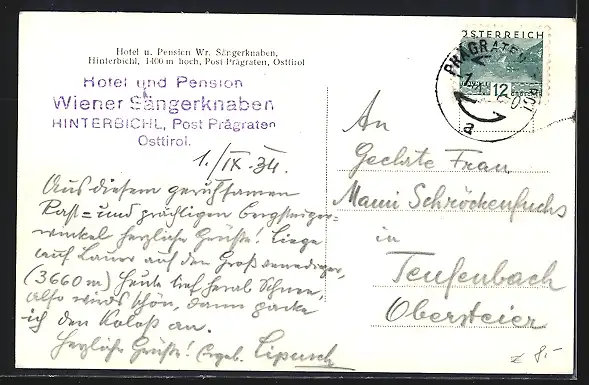 Hotel u. Pension Wr. Sängerknaben,
Hinterbichl, 1400 m hoch, Post Prägraten, Osttirol
Hotel und Pension
Wiener Sängerknaben
HINTERBICHL, Post Prägraten
Osttirol.
1./IX.34.
Aus diesem geruhsamen
Rast= und prächtigen Bergsteiger=
winkel herzliche Grüße! Liege
auf Lauer auf den Großvenediger,
(3660 m) Heute tief herab Schnee,
also wird's schön, dann packe
ich den Koloß an.
Herzliche Grüße! Ergeb. Lipusch
ÖSTERREICH
12
PRÄGRATEN
a
An
Geehrte Frau
Mami Schröckenfuchs
in
Teufenbach
Obersteier
8.-